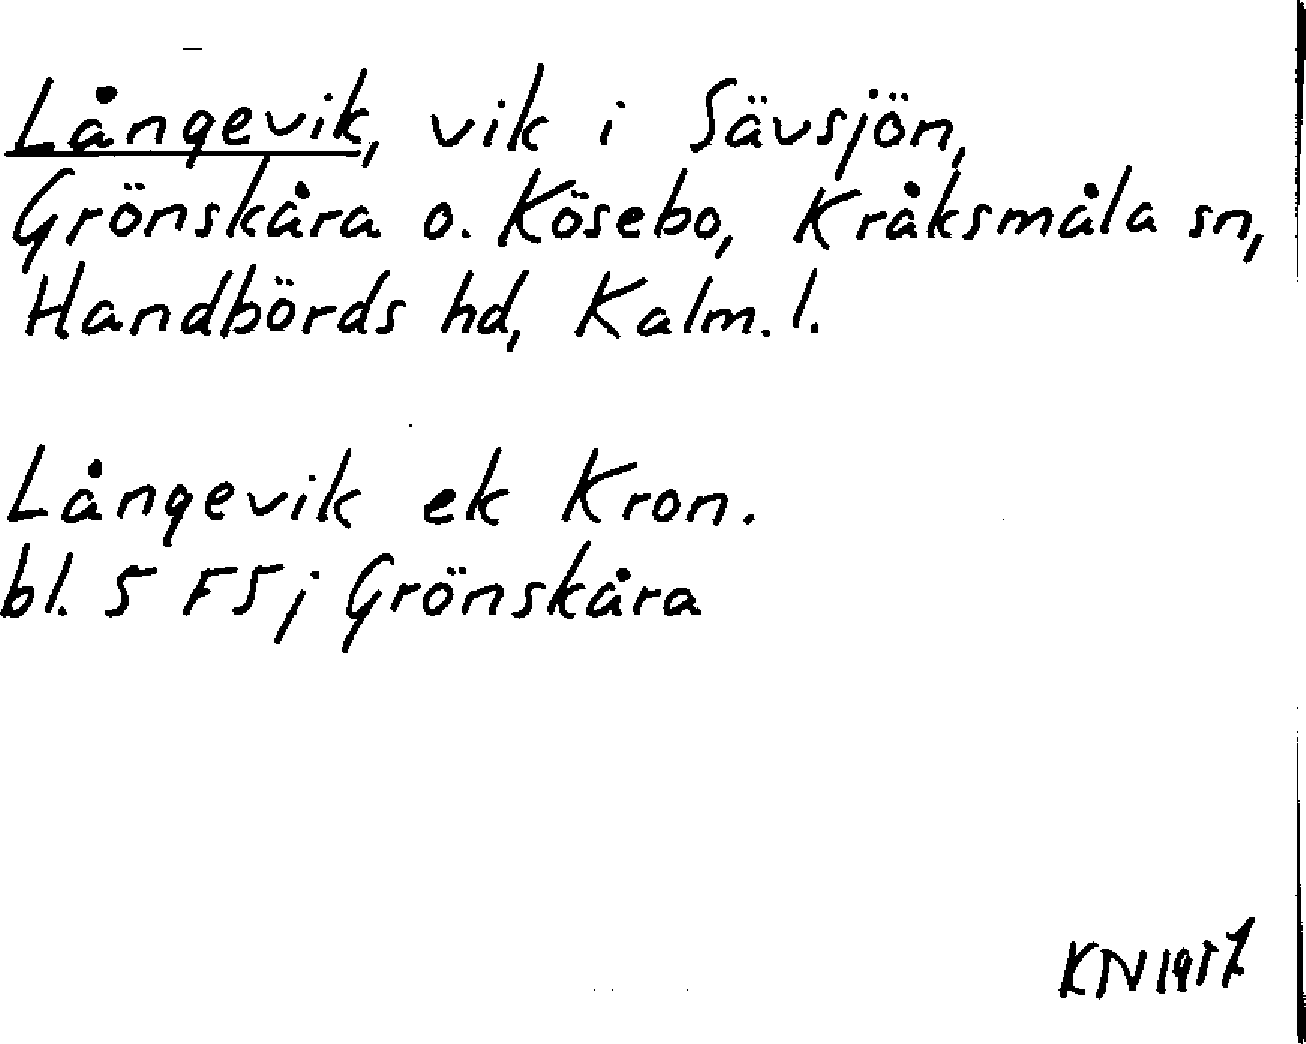 Långevik, vik i Sävsjön,
Grönskåra o. Kösebo, Kråksmåla sn,
Handbörds hd, Kalm. l.
Långevik ek Kron.
bl. 5 F5j Grönskåra
KN 1957